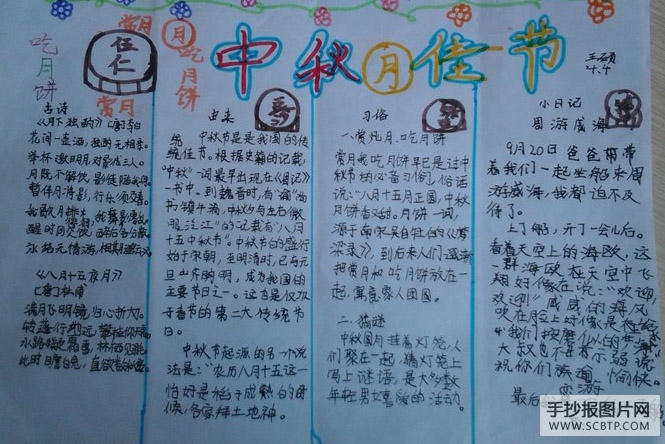 赏月
月
吃月饼
吃月饼
伍仁
赏月
中秋月佳节
4.4
古诗
《月下独酌》
花间一壶酒，独酌无相亲。
举杯邀明月，对影成三人。
月既不解饮，影徒随我身。
暂伴月将影，行乐须及春。
永结无情游，相期邈云汉。
《八月十五夜月》
满月飞明镜，归心折大刀。
由来
中秋节是是我国的传
统佳节。根据史籍的记载，
"中秋"一词最早出现在《周礼》
一书中。到魏晋时，有"谕"尚
书镇牛渚，中秋夕与左右微
服泛江"的记载有"八月
十五中秋节"。中秋节的盛行
始于宋朝，至明清时，已与元
旦齐明，成为我国的
主要节日之一。这也是仅次
于春节的第二大传统节
日。
中秋节起源的另一个说
法是："农历八月十五这一
恰好是稻子成熟的时
候，各家拜土地神。
习俗
一、赏月、吃月饼
赏月和吃月饼早已是过中
秋节的必备习俗，俗话
说："八月十五月正圆，中秋
月饼香又甜。月饼一词，
源于南宋吴自牧的《梦
梁录》，到后来人们逐渐
把赏月和吃月饼放在一
起，寓意家人团圆。
二、猜谜
中秋圆月挂着灯笼，人
们聚在一起，猜灯笼上
写上谜语，是大多数
年轻男女喜爱的活动。
小日记
周游威海
9月20日爸爸带
着我们一起坐船来周
游威海，我都迫不及
待了。
上了船，开了一会儿后。
看着天空上的海欧，这
群海欧在天空中飞
翔好像在说："欢迎，
欢迎！"威威的海风
吹在脸上好像是在给
我们按摩似的
大鼓也不甘示弱说
祝你们旅途愉快。
最后
手抄报图片网
WWW.SCBTP.COM